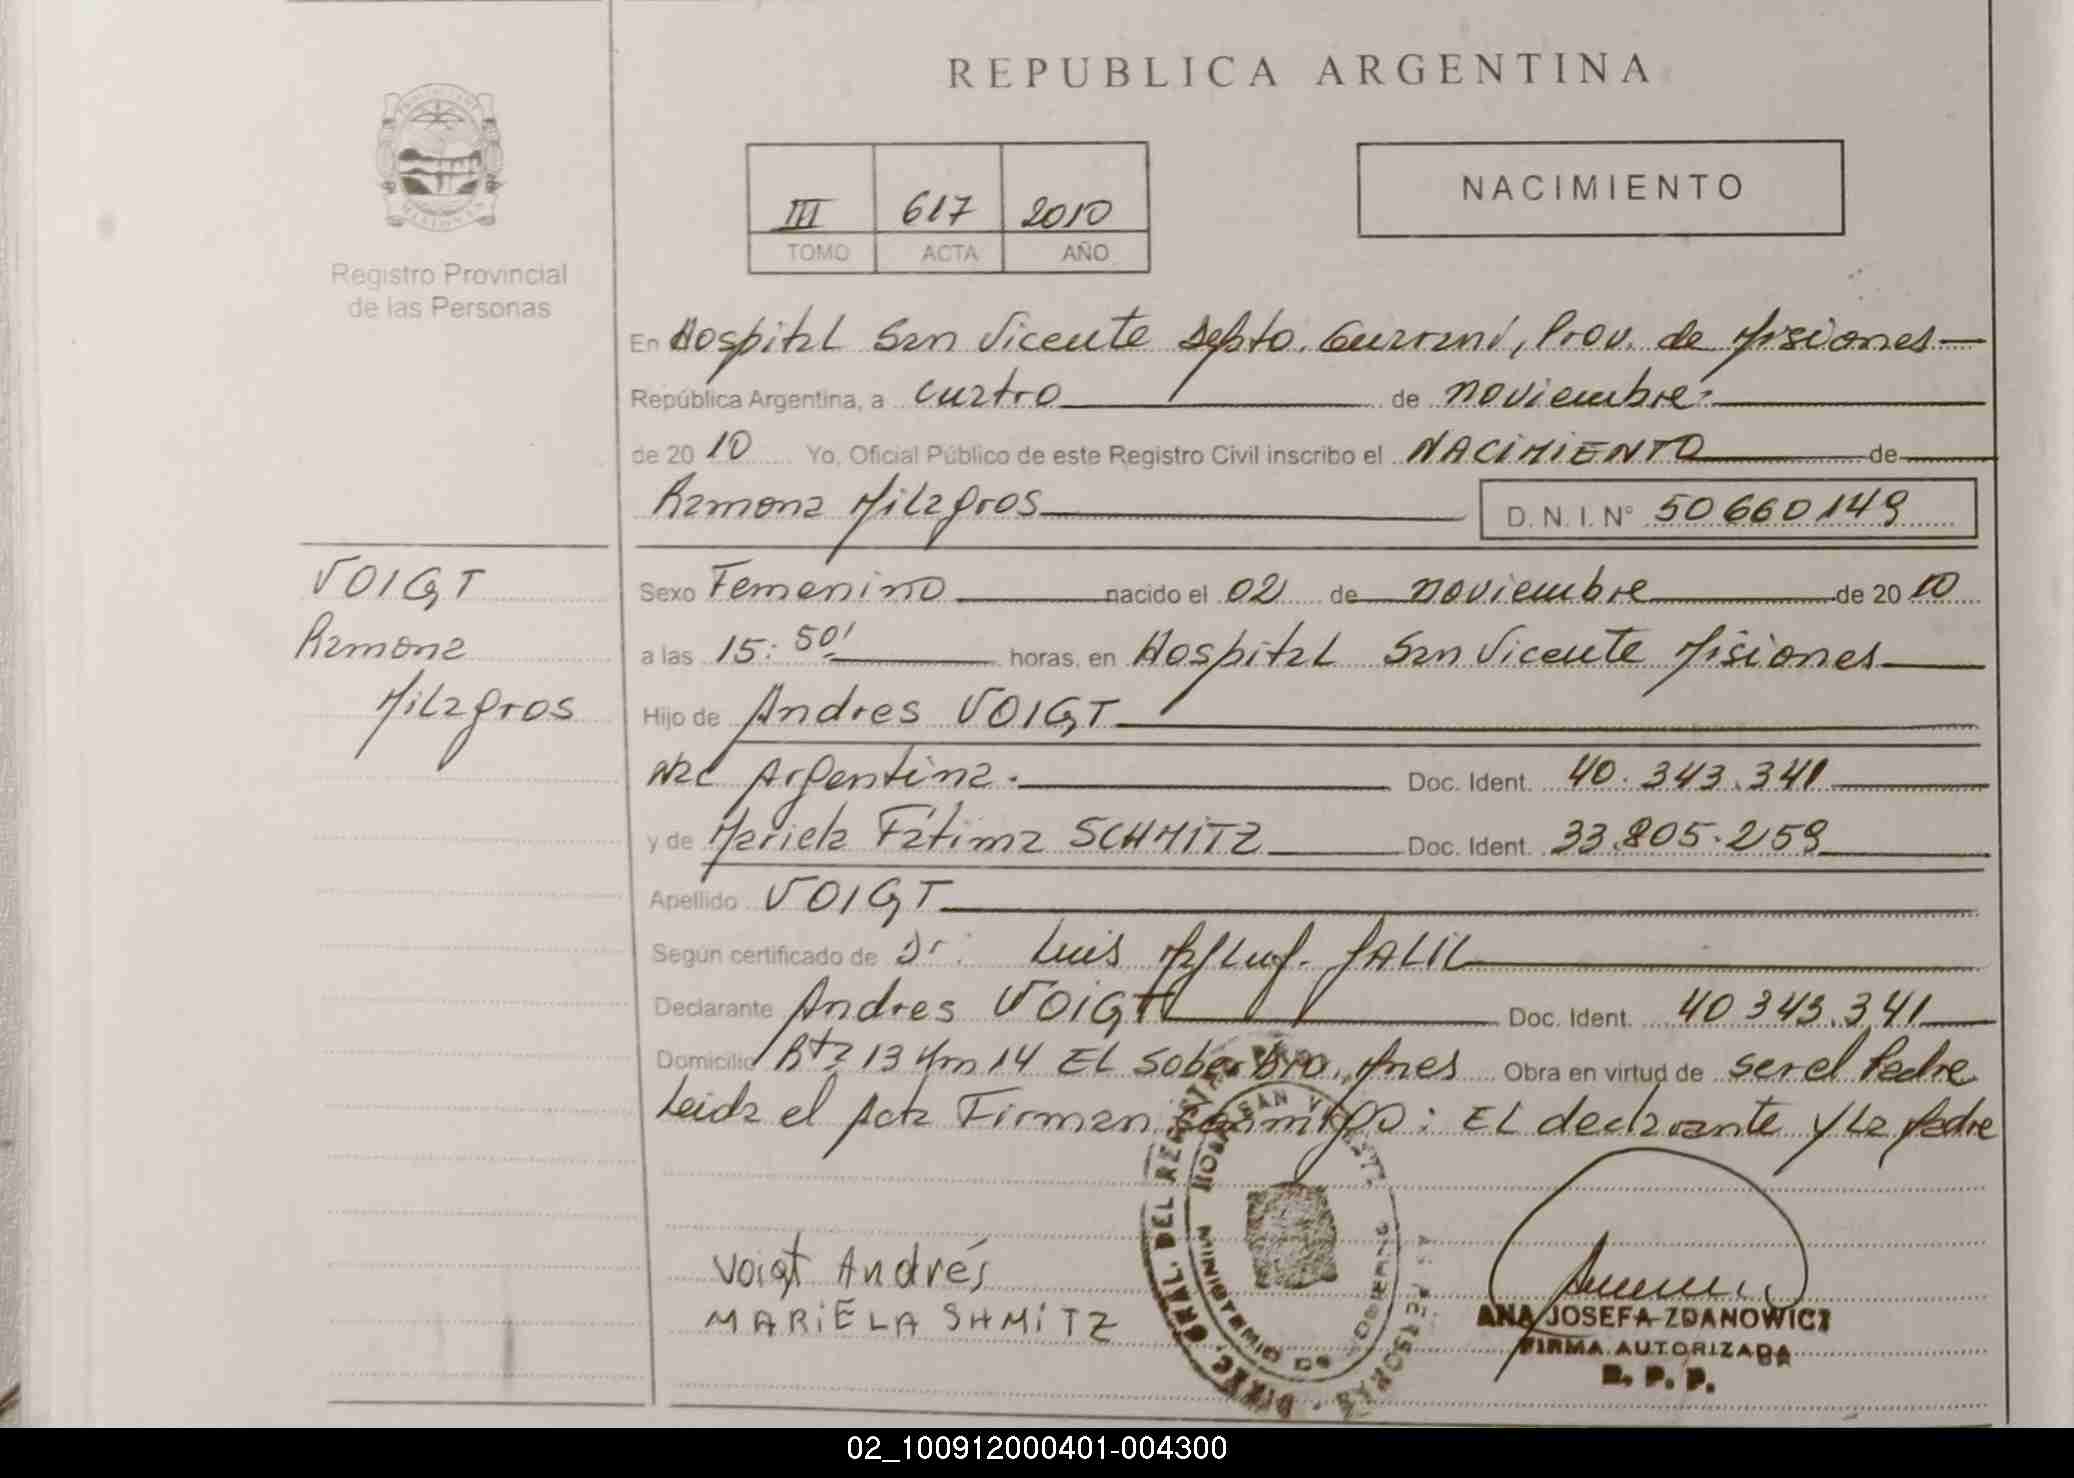 REPUBLICA ARGENTINA
III 617 2010
TOMO ACTA AÑO
NACIMIENTO
Registro Provincial
de las Personas
En Hospital San Vicente Depto. Guaraní, Prov. de Misiones
República Argentina, a cuatro de noviembre
de 2010 Yo, Oficial Público de este Registro Civil inscribo el NACIMIENTO de
Ramona Milagros D. N. I. N° 50660149
VOIGT
Ramona
Milagros
Sexo Femenino nacido el 02 de noviembre de 2010
a las 15:50' horas, en Hospital San Vicente Misiones
Hijo de Andres VOIGT
Nac Argentina. Doc. Ident. 40.343.341
y de Mariela Fátima SCHMITZ Doc. Ident. 33.805.259
Apellido VOIGT
Según certificado de Dr. Luis JALIL
Declarante Andres VOIGT Doc. Ident. 40 343.341
Domicilio Rta 13 Km 14 EL Soberbio, Mnes Obra en virtud de ser el Padre
Leida el Acta Firman conmigo: EL declarante y La Madre
Voigt Andrés
MARIELA SHMITZ
DIREC. GRAL. DEL REGISTRO
SAN
MINISTERIO DE GOBIERNO
PERSONAS
ANA JOSEFA ZDANOWICZ
FIRMA AUTORIZADA
R. P. P.
02_100912000401-004300